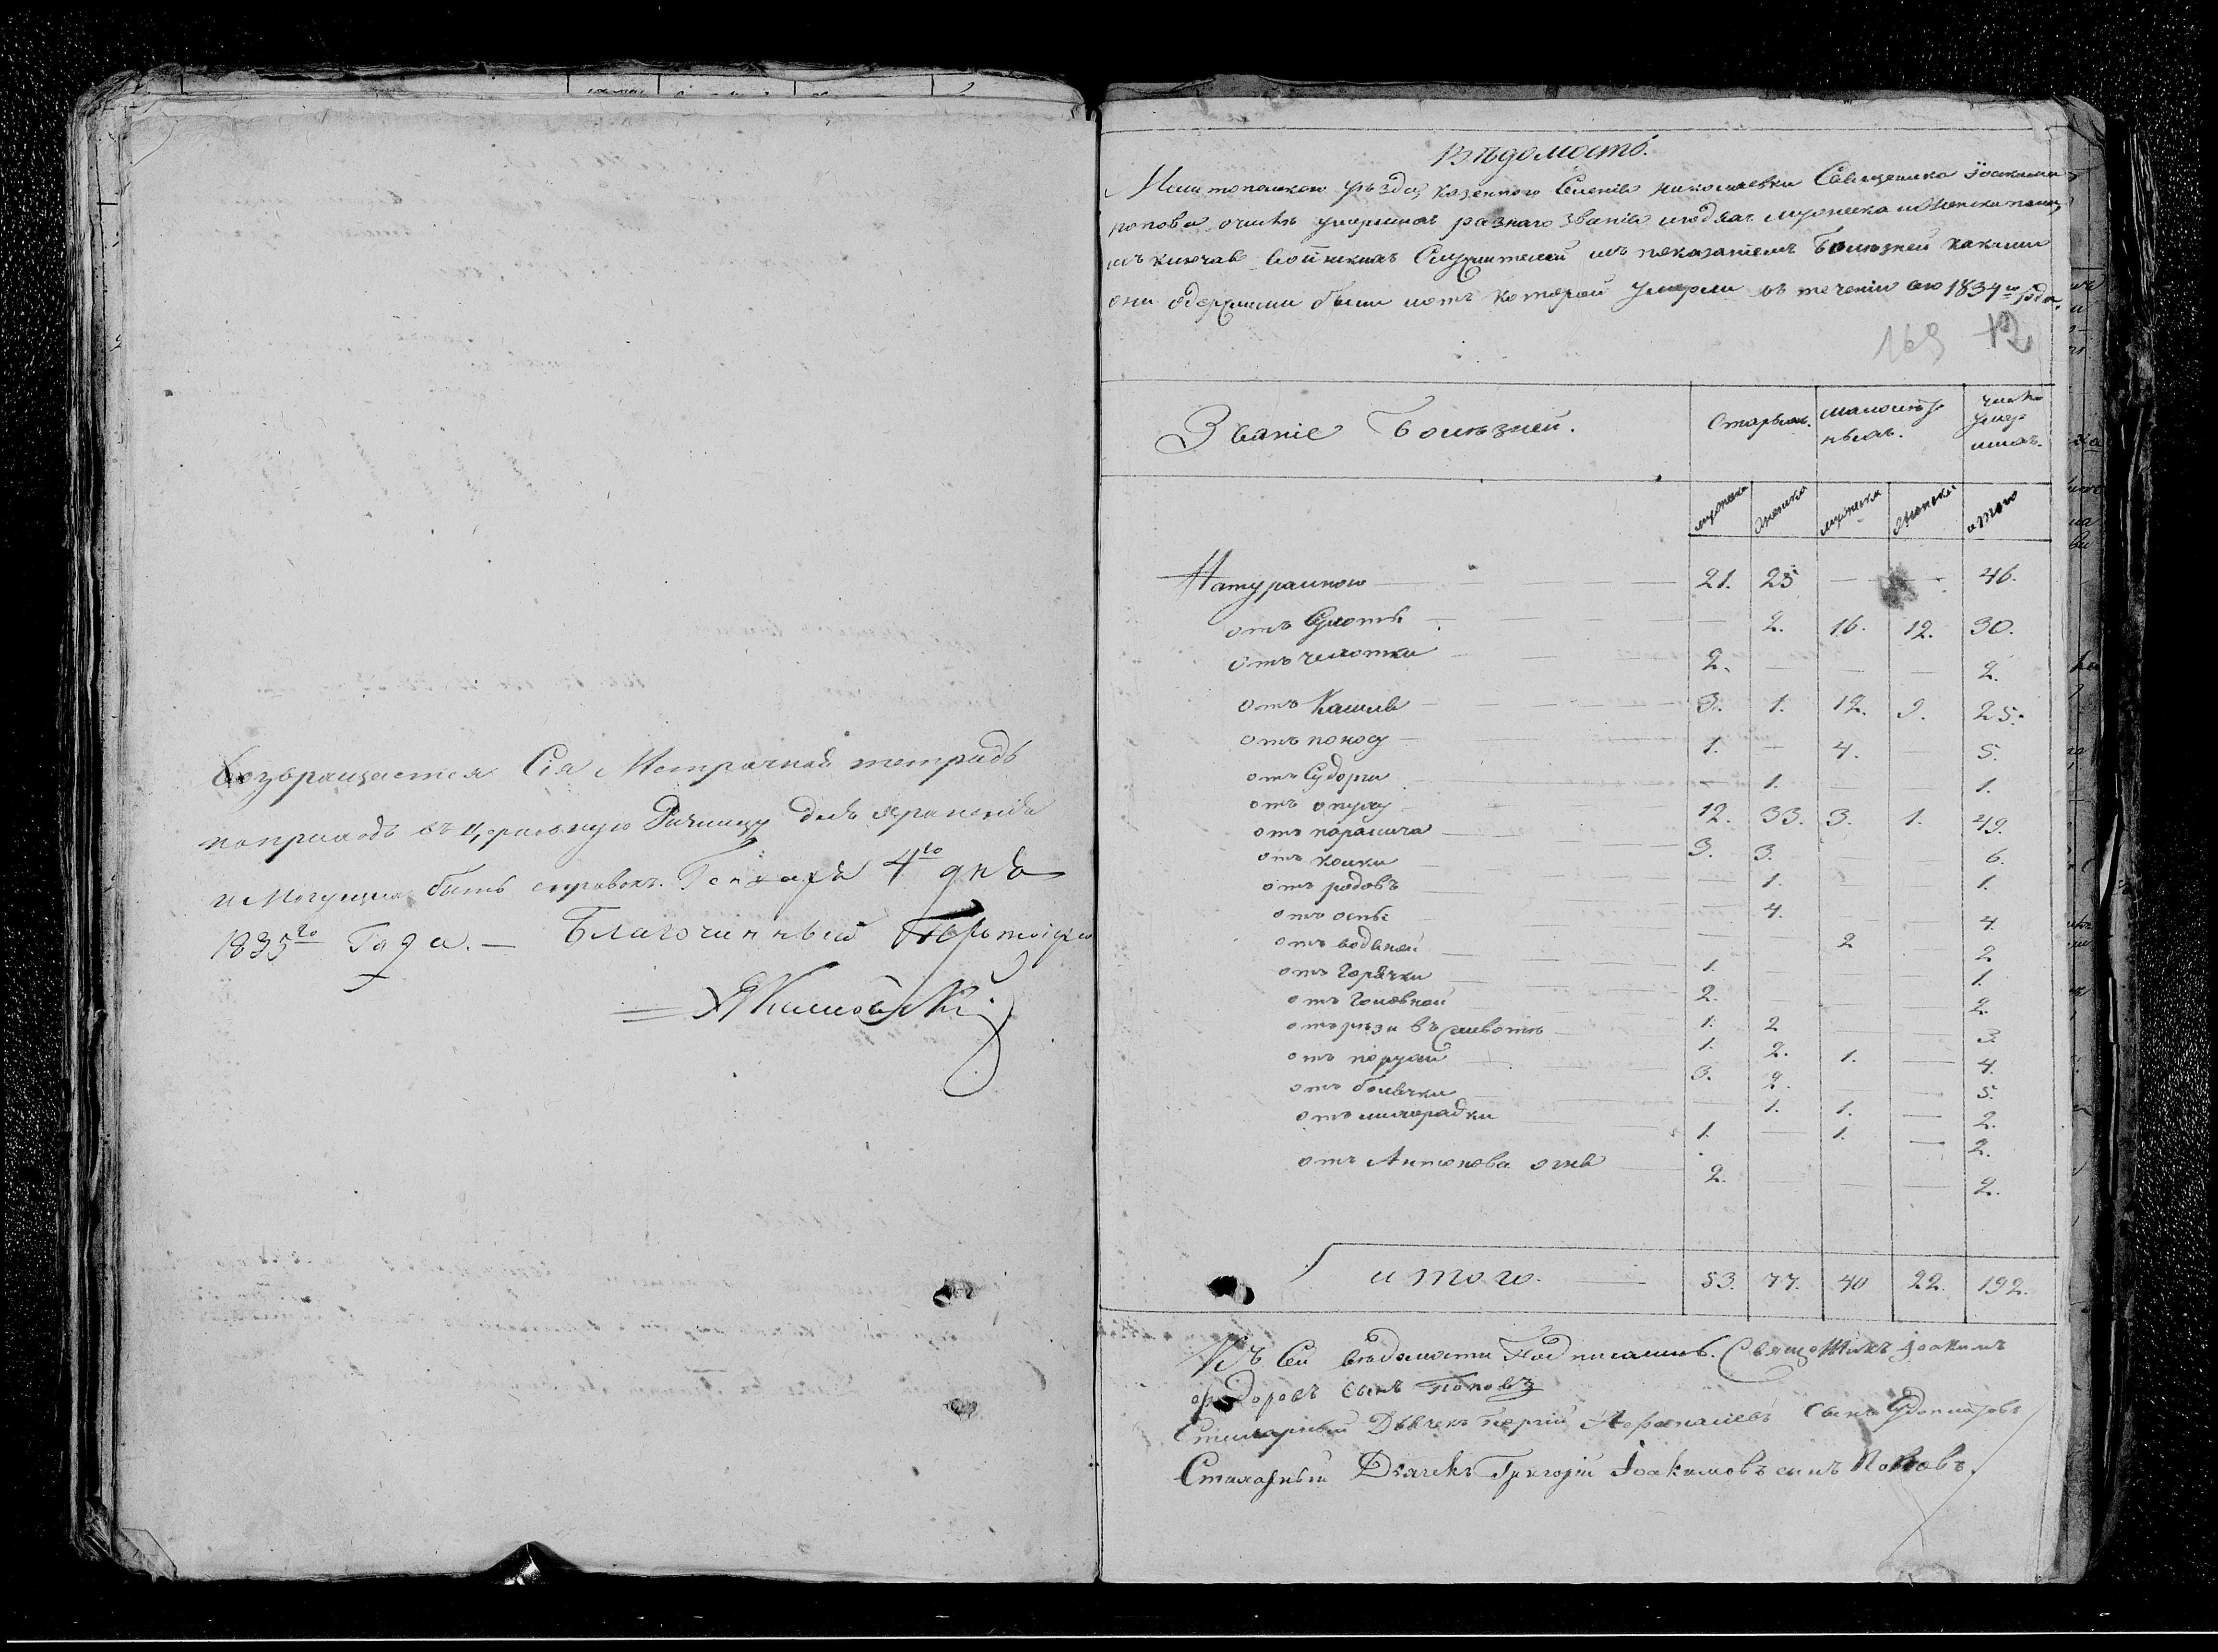 Возвращается Сiя Метрачная тетрадь
по приходъ въ церковную Ризницу для храненiя
и Могущихъ быть справокъ. Генваря 4го дня
1835го Года. — Благочинный
Вѣдомость.
Мелитопольскаго уѣзда, казеннаго Селенiя Николаевки Священника Iоакима
Попова, о числѣ умершихъ разнаго званiя людяхъ мужеска и женска пола,
изъ ключая воинскихъ Служителей изъ показанiемъ Болезней какими
они одержимы были и отъ которой умерли въ теченiи сего 1834го года.
169 12
Званiе Болѣзней.
Старыхъ.
малолѣт-
ныхъ.
число
умер-
шихъ.
мужеска женска мужеска женска итого
Натуральною — 21. 25 — — 46.
отъ Сухоты — — 2. 16. 12. 30.
отъ чихотки — 2. — — — 2.
отъ Кашля — 3. 1. 12. 9. 25.
отъ поносу — 1. — 4. — 5.
отъ Судорги — — 1. — 1.
отъ опуху — 12. 33. 3. 1. 49.
отъ паралича — 3. 3. — — 6.
отъ колки — — 1. — — 1.
отъ родовъ — — 4. — — 4.
отъ оспы — — — 2 — 2
отъ водяной — 1. — — 1.
отъ Горячки — 2. — — 2.
отъ Головной — 1. 2 — — 3.
отъ рѣзи въ животѣ — 1. 2. 1. — 4.
отъ — 3. 2. — 5.
отъ болячки — — 1. 1. — 2.
отъ лихорадки — 1. — 1. — 2.
отъ Антонова огня — 2. — — — 2.
итого. — 53. 77. 40 22. 192.
Къ Сей вѣдомости Подписались. Священникъ Iоакимъ
Федоровъ Сынъ Поповъ
Стихарный Дьячекъ Георгiй Афанасiевъ Сынъ
Стихарный Дьячекъ Григорiй Iоакимовъ сынъ Поповъ.